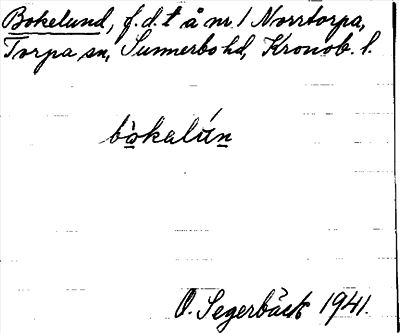 Bokelund, f.d. t å nr. 1 Norrtorpa,
Torpa sn, Sunnerbo hd, Kronob. l.
bo̱kalún̲
O. Segerbäck 1941.